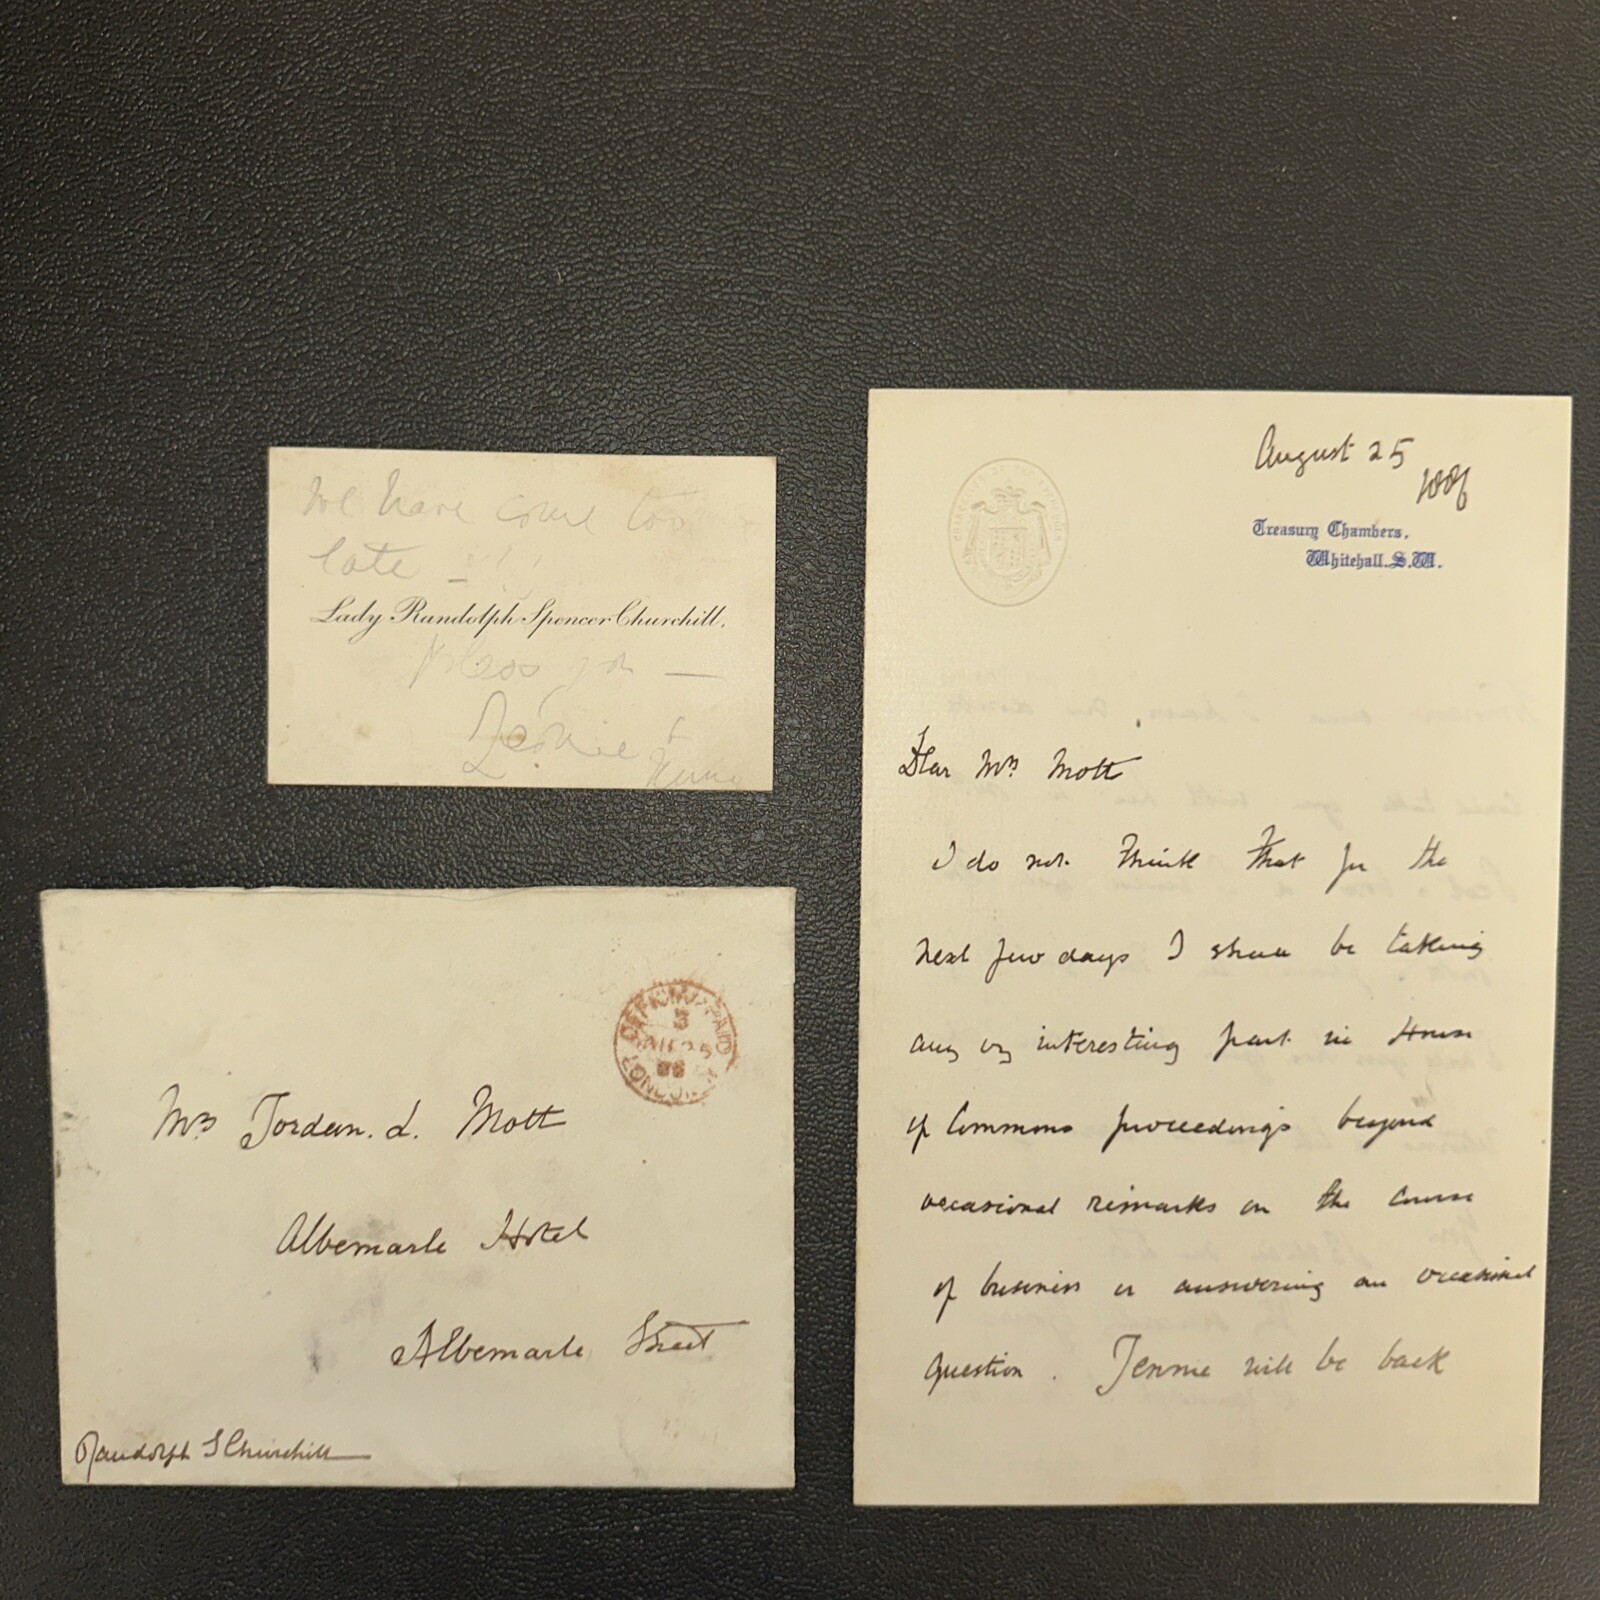 We have come too
late –
Lady Randolph Spencer Churchill.
bless you —
Jennie &
OFFICIAL PAID
3
AU 25
86
LONDON
Mrs Jordan. L. Mott
Albemarle Hotel
Albemarle Street
Randolph S Churchill
August 25
1886
Treasury Chambers,
Whitehall. S.W.
Dear Mrs Mott
I do not think that for the
next few days I shall be taking
any vy interesting part in House
of Commons proceedings beyond
occasional remarks on the course
of business or answering an occasional
question. Jennie will be back